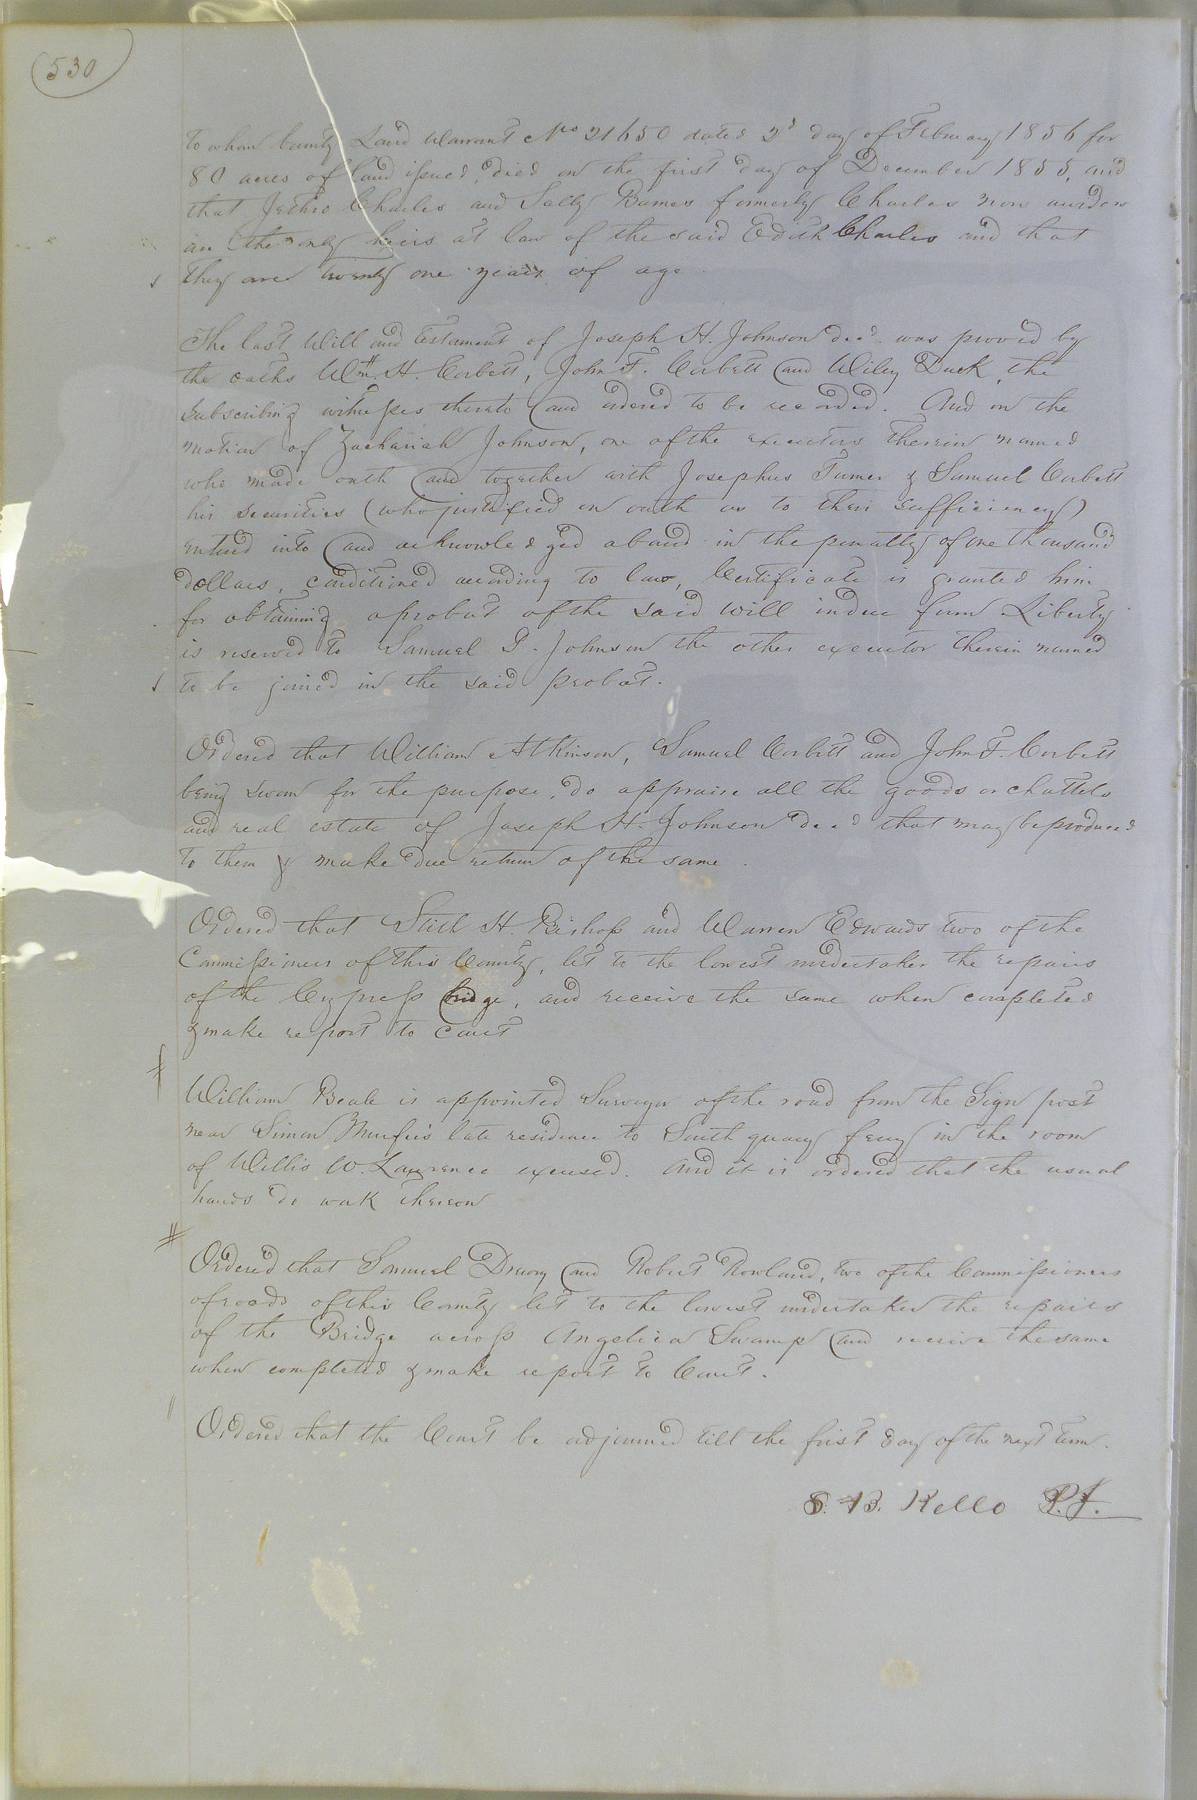 530
to whom bounty Land Warrant No 21650 dated 2d day of February 1856 for
80 acres of land issued, died on the first day of December 1855, and
that Jethro Charles and Sally Barnes formerly Charles now widow
are the only heirs at law of the said Edith Charles and that
they are twenty one years of age
The last Will and testament of Joseph H. Johnson decd was proved by
the oaths Wm H. Corbett, John F. Corbett and Wiley Duck, the
subscribing witnesses thereto and ordered to be recorded. And on the
motion of Zachariah Johnson, one of the executors therein named
who made oath and together with Josephus Turner & Samuel Corbett
his securities (who justified on oath as to their sufficiency)
entered into and acknowledged a bond in the penalty of one thousand
dollars, conditioned according to law, Certificate is granted him
for obtaining a probat of the said will in due form Liberty
is reserved to Samuel D. Johnson the other executor therein named
to be joined in the said probat.
Ordered that William Atkinson, Samuel Corbett and John F. Corbett
being sworn for the purpose, do appraise all the goods or chattels
and real estate of Joseph H. Johnson decd that may be produced
to them & make due return of the same.
Ordered that Stith H. Bishop and Warren Edwards two of the
Commissioners of this County, let to the lowest undertaker the repairs
of the Cypress bridge, and receive the same when completed
& make report to Court
William Beale is appointed Surveyor of the road from the Sign post
near Simon Murfee's late residence to South quay ferry in the room
of Willis W. Lawrence excused. And it is ordered that the usual
hands do work thereon
Ordered that Samuel Drewry and Robert Rowland, two of the Commissioners
of roads of this County let to the lowest undertaker the repairs
of the Bridge across Angelica Swamp and receive the same
when completed & make report to Court.
Ordered that the Court be adjourned till the first day of the next term.
S. B. Kello P.J.